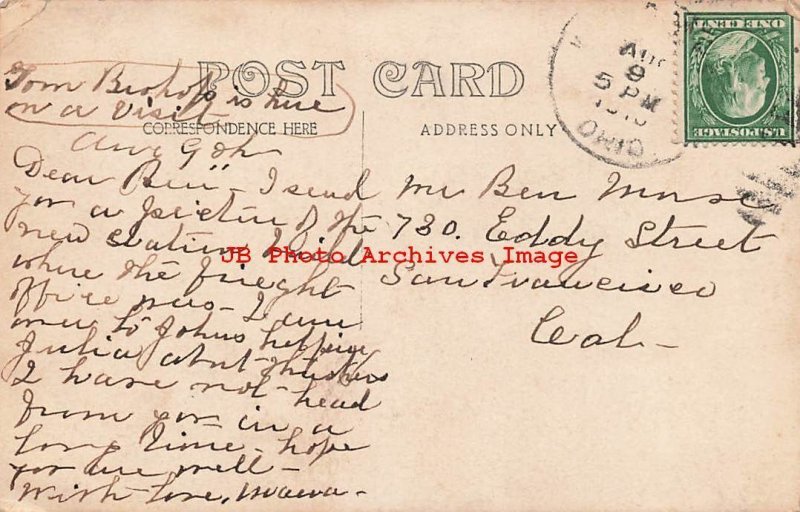 POST CARD
CORRESPONDENCE HERE
ADDRESS ONLY
Tom Bishop is here
on a visit
Aug 9th
Dear Ben - I send
yor a picture of the
new station
where the frieght
office was - I am
over to Johns helping
Julia abut thushers
I have not head
from yor in a
long time - hope
yor are well -
With love, Mama -
Mr Ben Morse
730. Eddy Street
San Francisco
Cal -
AUG
9
5 PM
1910
OHIO
ONE CENT
U.S. POSTAGE
JB Photo Archives Image